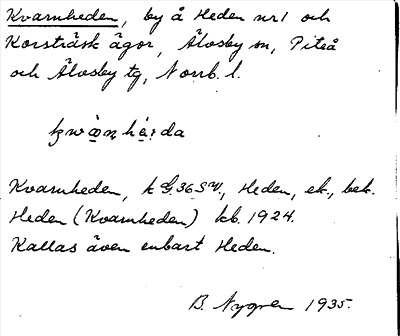 Kvarnheden, by å Heden nr 1 och
Korsträsk ägor, Älvsby sn, Piteå
och Älvsby tg, Norrb. l.
Kvarnheden, k G. 36 SV., Heden, ek., bek.
Heden (Kvarnheden) kb. 1924.
Kallas även enbart Heden.
B. Nygren 1935.